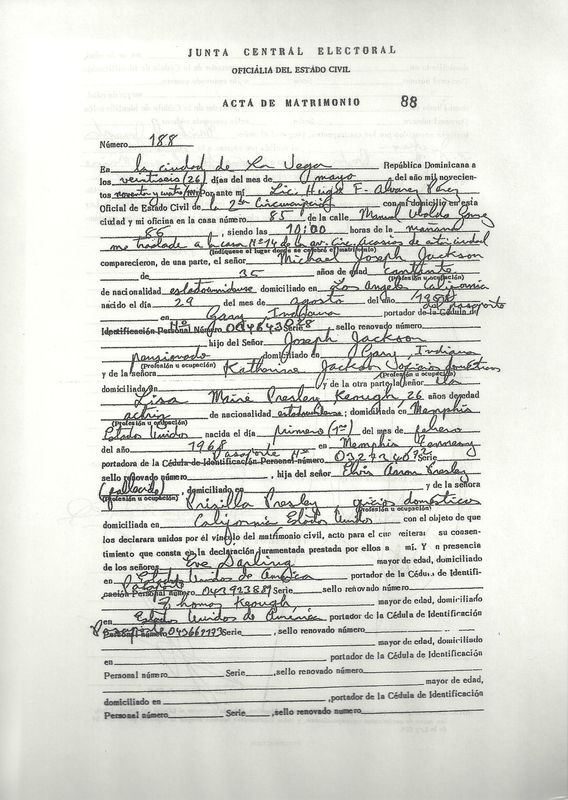 JUNTA CENTRAL ELECTORAL
OFICIALIA DEL ESTADO CIVIL
ACTA DE MATRIMONIO 88
Número 188
En la ciudad de La Vega República Dominicana a
los veintiseis (26) días del mes de mayo del año mil novecien-
tos noventa y cuatro Por ante mí Lic. F. Alvarez Perez
Oficial de Estado Civil de la 2da Circunscripción con mi domicilio en esta
ciudad y mi oficina en la casa número 85 de la calle Manuel Ubaldo Gomez
85, siendo las 10:00 horas de la mañana
me traslade a la casa Nº 14 de la de esta ciudad
(Indíquese el lugar donde se celebró el matrimonio)
comparecieron, de una parte, el señor Michael Joseph Jackson
de 35 años de edad cantante
(Profesión u ocupación)
de nacionalidad estadounidense domiciliado en Los Angeles California
nacido el día 29 del mes de agosto del año 1958
en Gary Indiana portador de la Cédula de del pasaporte
Identificación Personal Número Nº Serie sello renovado número
hijo del Señor Joseph Jackson
pensionado domiciliado en Gary, Indiana
(Profesión u ocupación)
y de la señora Katherine Jackson oficios domésticos
(Profesión u ocupación)
domiciliada en y de la otra parte la señor ita
Lisa Marie Presley Keough, 26 años de edad
actriz de nacionalidad estadounidense; domiciliada en Memphis
(Profesión u ocupación)
Estados Unidos nacida el día primero (1ro) del mes de febrero
del año 1968 en Memphis Tennessy
portadora de la Cédula de Identificación Personal número Pasaporte Nº Serie
sello renovado número, hija del señor Elvis Aaron Presley
(fallecido), domiciliado en y de la señora
(Profesión u ocupación)
Prisilla Presley oficios domésticos
(Profesión u ocupación)
domiciliada en California Estados Unidos con el objeto de que
los declarara unidos por el vínculo del matrimonio civil, acto para el cual reiteran su consen-
timiento que consta en la declaración juramentada prestada por ellos a mí. Y en presencia
de los señores Eve Darling mayor de edad, domiciliado
en Estados Unidos de America portador de la Cédula de Identifi-
cación Personal número Pasaporte 043923889 Serie, sello renovado número
Thomas Keough mayor de edad, domiciliado
en Estados Unidos de América portador de la Cédula de Identificación
Personal número Pasaporte Serie, sello renovado número
mayor de edad, domiciliado
en portador de la Cédula de Identificación
Personal número Serie, sello renovado número
mayor de edad,
domiciliado en, portador de la Cédula de Identificación
Personel número Serie, sello renovado numero